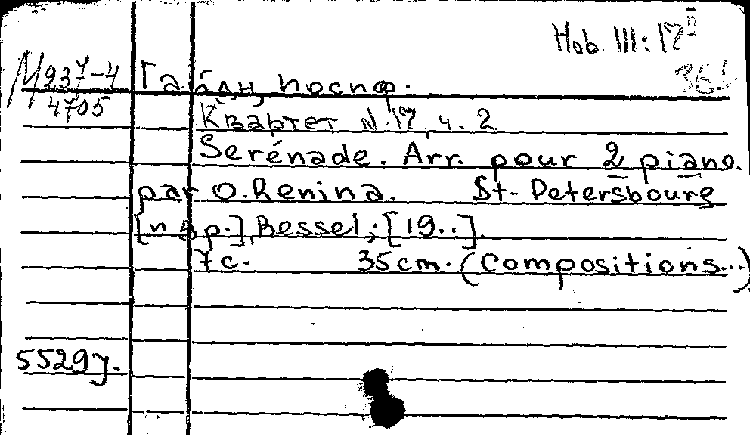 Hob. III: 17 II
М 937-4
4705
Гайдн, Иосиф.
Квартет N. 17, ч. 2
Serénade. Arr. pour 2 piano.
par O. Renina. St-Petersbourg
[п др.], Bessel; [19..].
7 с. 35 cm. (Compositions...)
5529у.